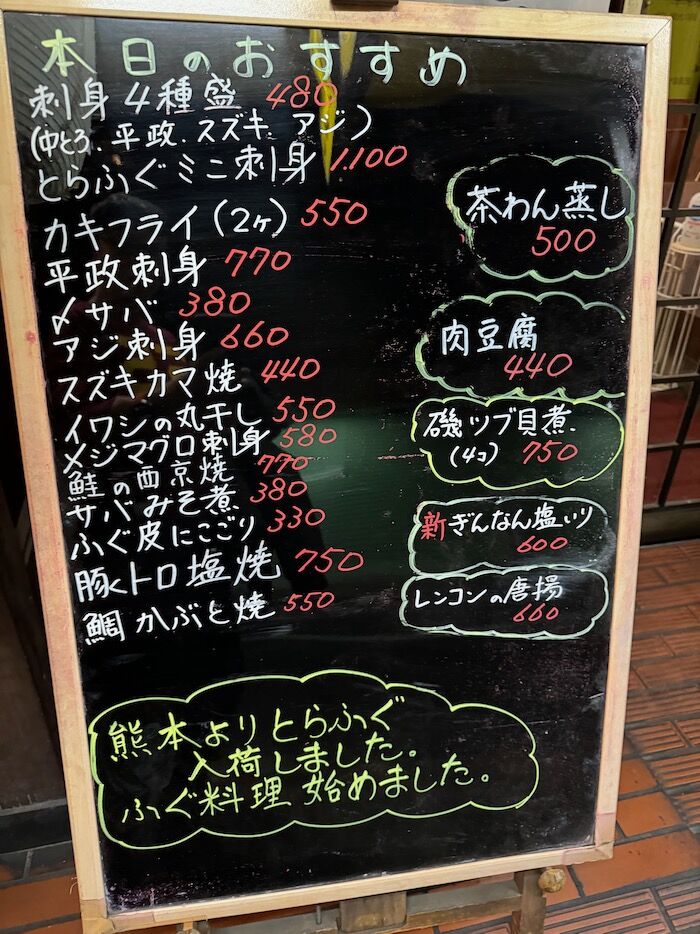 本日のおすすめ
刺身4種盛 480
(中とろ、平政、スズキ、アジ)
とらふぐミニ刺身 1.100
カキフライ(2ヶ) 550
平政刺身 770
〆サバ 380
アジ刺身 660
スズキカマ焼 440
イワシの丸干し 550
メジマグロ刺身 580
鮭の西京焼 770
サバみそ煮 380
ふぐ皮にこごり 330
豚トロ塩焼 750
鯛かぶと焼 550
茶わん蒸し
500
肉豆腐
440
磯ツブ貝煮.
(4コ) 750
新ぎんなん塩いり
600
レンコンの唐揚
660
熊本よりとらふぐ
入荷しました。
ふぐ料理 始めました。